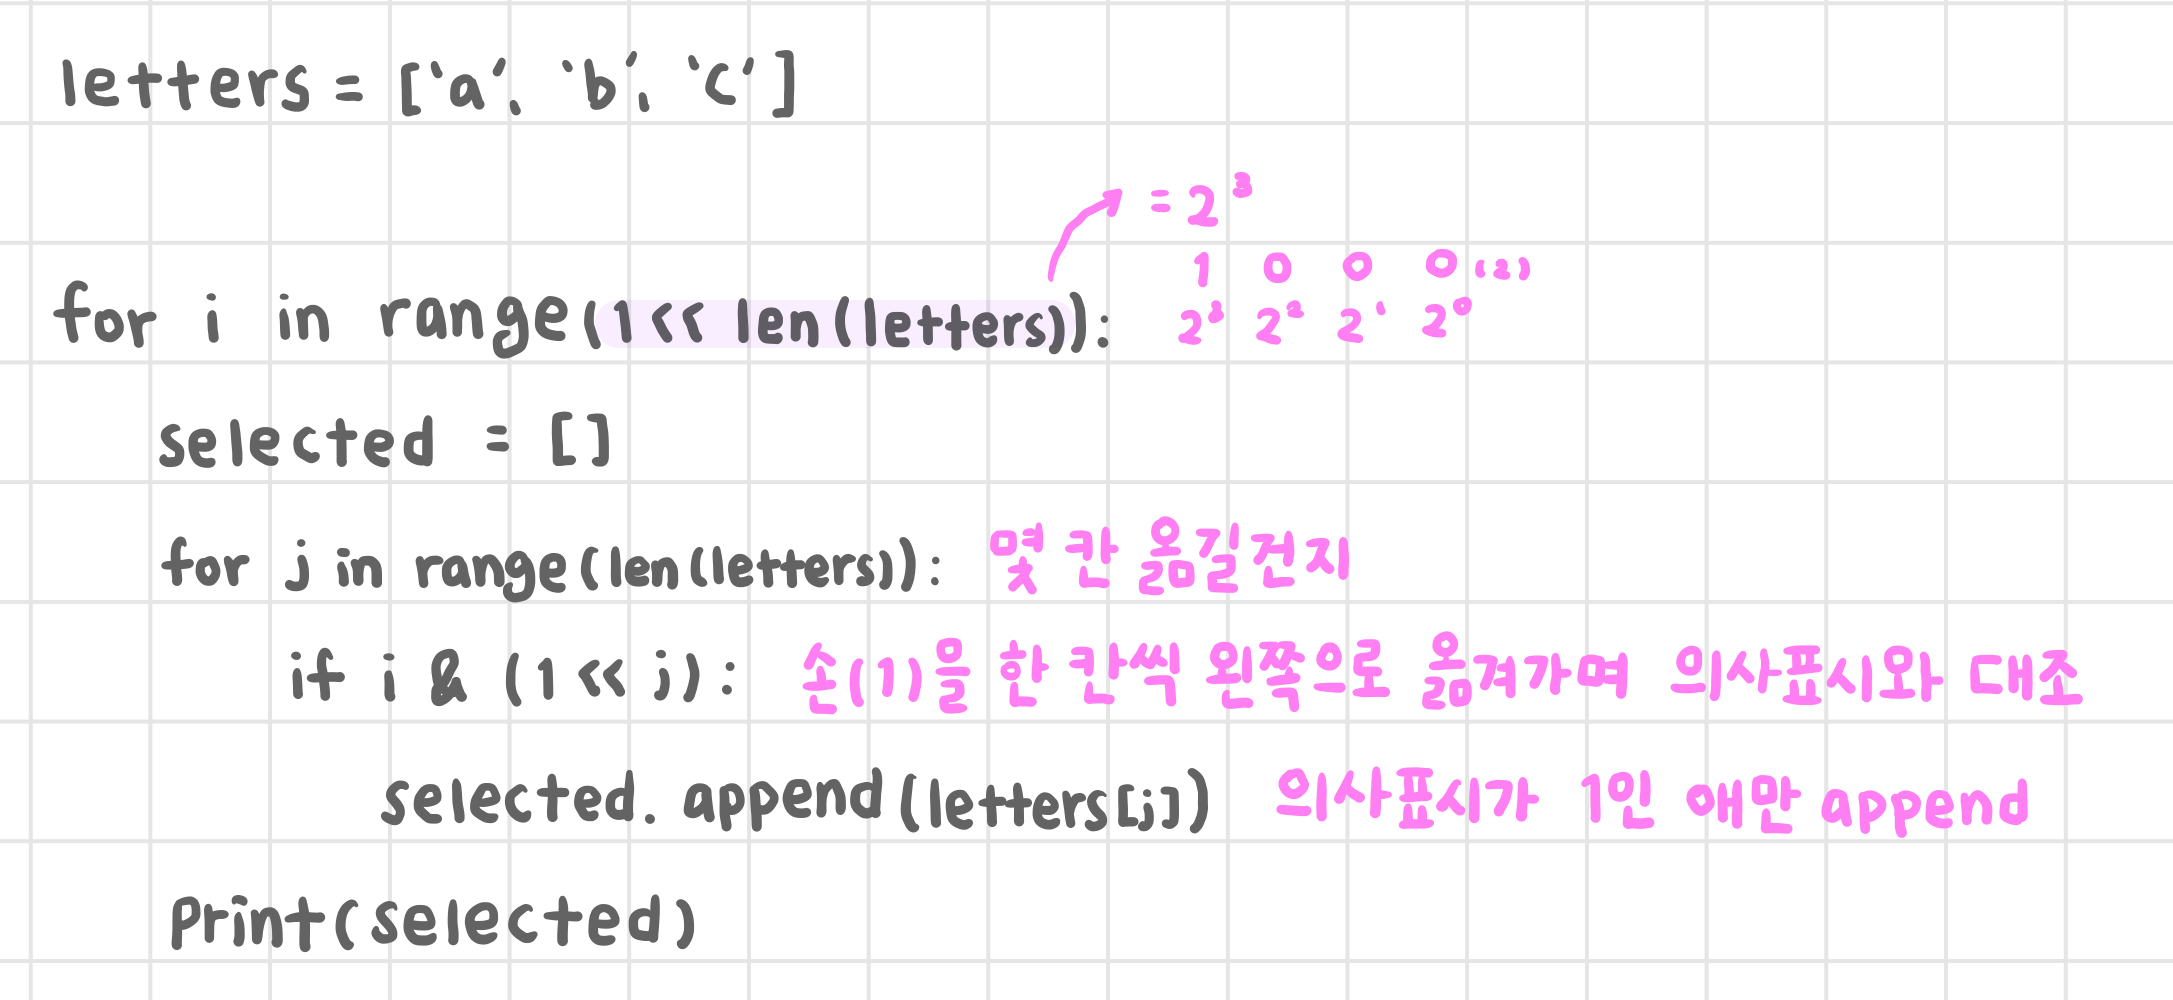 letters = ['a', 'b', 'c']
= 2³
1 0 0 0 (2)
for i in range(1 << len(letters)): 2³ 2² 2¹ 2⁰
selected = []
for j in range(len(letters)): 몇 칸 옮길건지
if i & (1 << j): 손(1)을 한 칸씩 왼쪽으로 옮겨가며 의사표시와 대조
selected.append(letters[j]) 의사표시가 1인 애만 append
Print(selected)